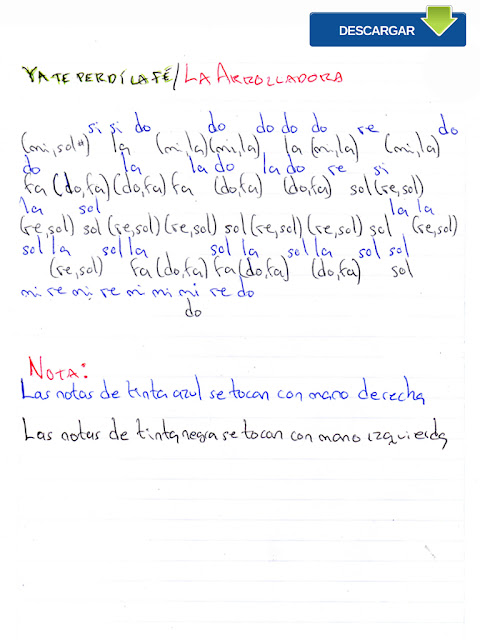 DESCARGAR
YA TE PERDÍ LA FÉ/LA ARROLLADORA
si si do do do do do re do
(mi,sol#) la (mi,la)(mi,la) la (mi,la) (mi,la)
do la la do la do re si
fa (do,fa)(do,fa) fa (do,fa) (do,fa) sol (re,sol)
la sol la la
(re,sol) sol (re,sol)(re,sol) sol (re,sol)(re,sol) sol (re,sol)
sol la sol la sol la sol la sol sol
(re,sol) fa (do,fa) fa (do,fa) (do,fa) sol
mi re mi re mi mi mi re do
do
NOTA:
Las notas de tinta azul se tocan con mano derecha
Las notas de tinta negra se tocan con mano izquierda